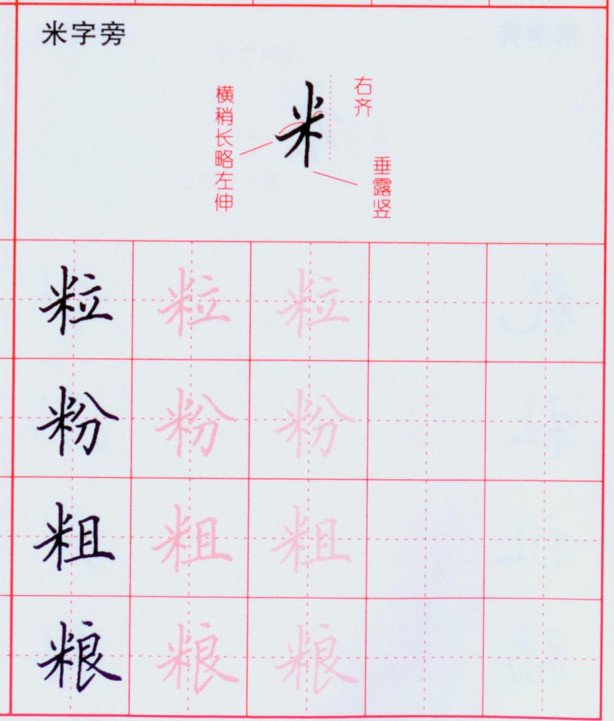 米字旁
横稍长略左伸
米
右齐
垂露竖
粒 粒 粒
粉 粉 粉
粗 粗 粗
粮 粮 粮